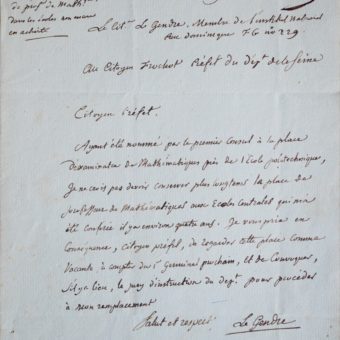 de prof. de Math.
dans les écoles non mises
en activité
Le Cit. Le Gendre, Membre de l'institut National
Rue Dominique F G nº 229
Au Citoyen Frochot Préfet du dép.t de la Seine
Citoyen Préfet.
Ayant été nommé par le premier Consul à la place
d'examinateur de Mathématiques près de l'Ecole polytechnique,
Je ne crois pas devoir conserver plus longtems la place de
professeur de Mathématiques aux Ecoles Centrales qui m'a
été conférée il y a environ quatre ans. Je vous prie en
Conséquence, citoyen préfet, de regarder cette place comme
Vacante à compter du 1er Germinal prochain, et de Convoquer,
s'il y a lieu, le jury d'instruction du dép.t pour procéder
à mon remplacement
Salut et respect
Le Gendre